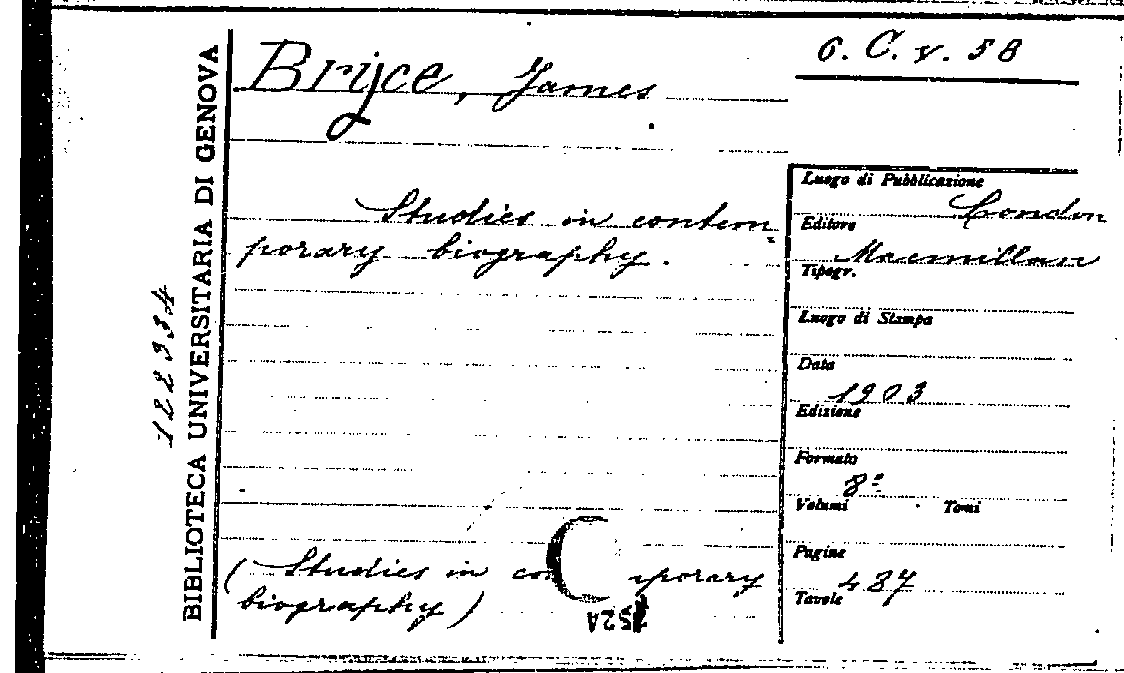 6. C. V. 58
Bryce, James
Studies in contem-
porary biography.
(Studies in co porary
biography)
Luogo di Pubblicazione
London
Editore
Macmillan
Tipogr.
Luogo di Stampa
Data
1903
Edizione
Formato
8º
Volumi Tomi
Pagine
437
Tavole
BIBLIOTECA UNIVERSITARIA DI GENOVA
122334